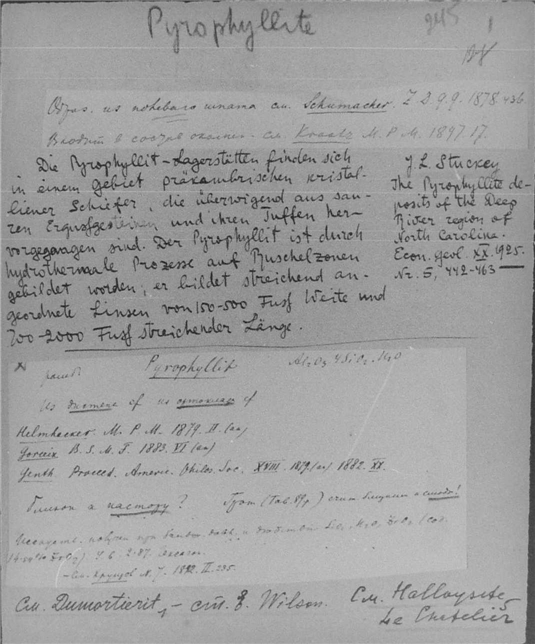 Pyrophyllite
245 1
Образ. из полевого шпата см. Schumacher. Z. D. g. G. 1878. 436.
Входит в состав см. Kraatz M. P. M. 1897. 17.
Die Pyrophyllit-Lagerstätten finden sich
in einem Gebiet präkambrischen kristal-
liener Schiefer, die überwiegend aus sau-
ren Ergussgesteinen und ihren Tuffen her-
vorgegangen sind. Der Pyrophyllit ist durch
hydrothermale Prozesse auf Ruschelzonen
gebildet worden; er bildet streichend an-
geordnete Linsen von 150-500 Fuss Weite und
700-2000 Fuss streichender Länge.
J. L. Stuckey
The Pyrophyllite de-
posits of the Deep
River region of
North Carolina.
Econ. geol. XX. 1925.
Nr. 5, 442-463
Pyrophyllit Al2O3 4SiO2 H2O
Из дистена cf по ортоклаз cf
Helmhacker. M. P. M. 1879. II. (an)
Goreix B. S. M. F. 1883. VI (an)
Genth Proceed. Americ. Philos. Soc. XVIII. 1879. (an) 1882. XX.
Близок к накриту?
см. N. J. 1892. II. 235.
См. Dumortierit, - ст. E. Wilson.
См. Halloysite,
Le Chatelier